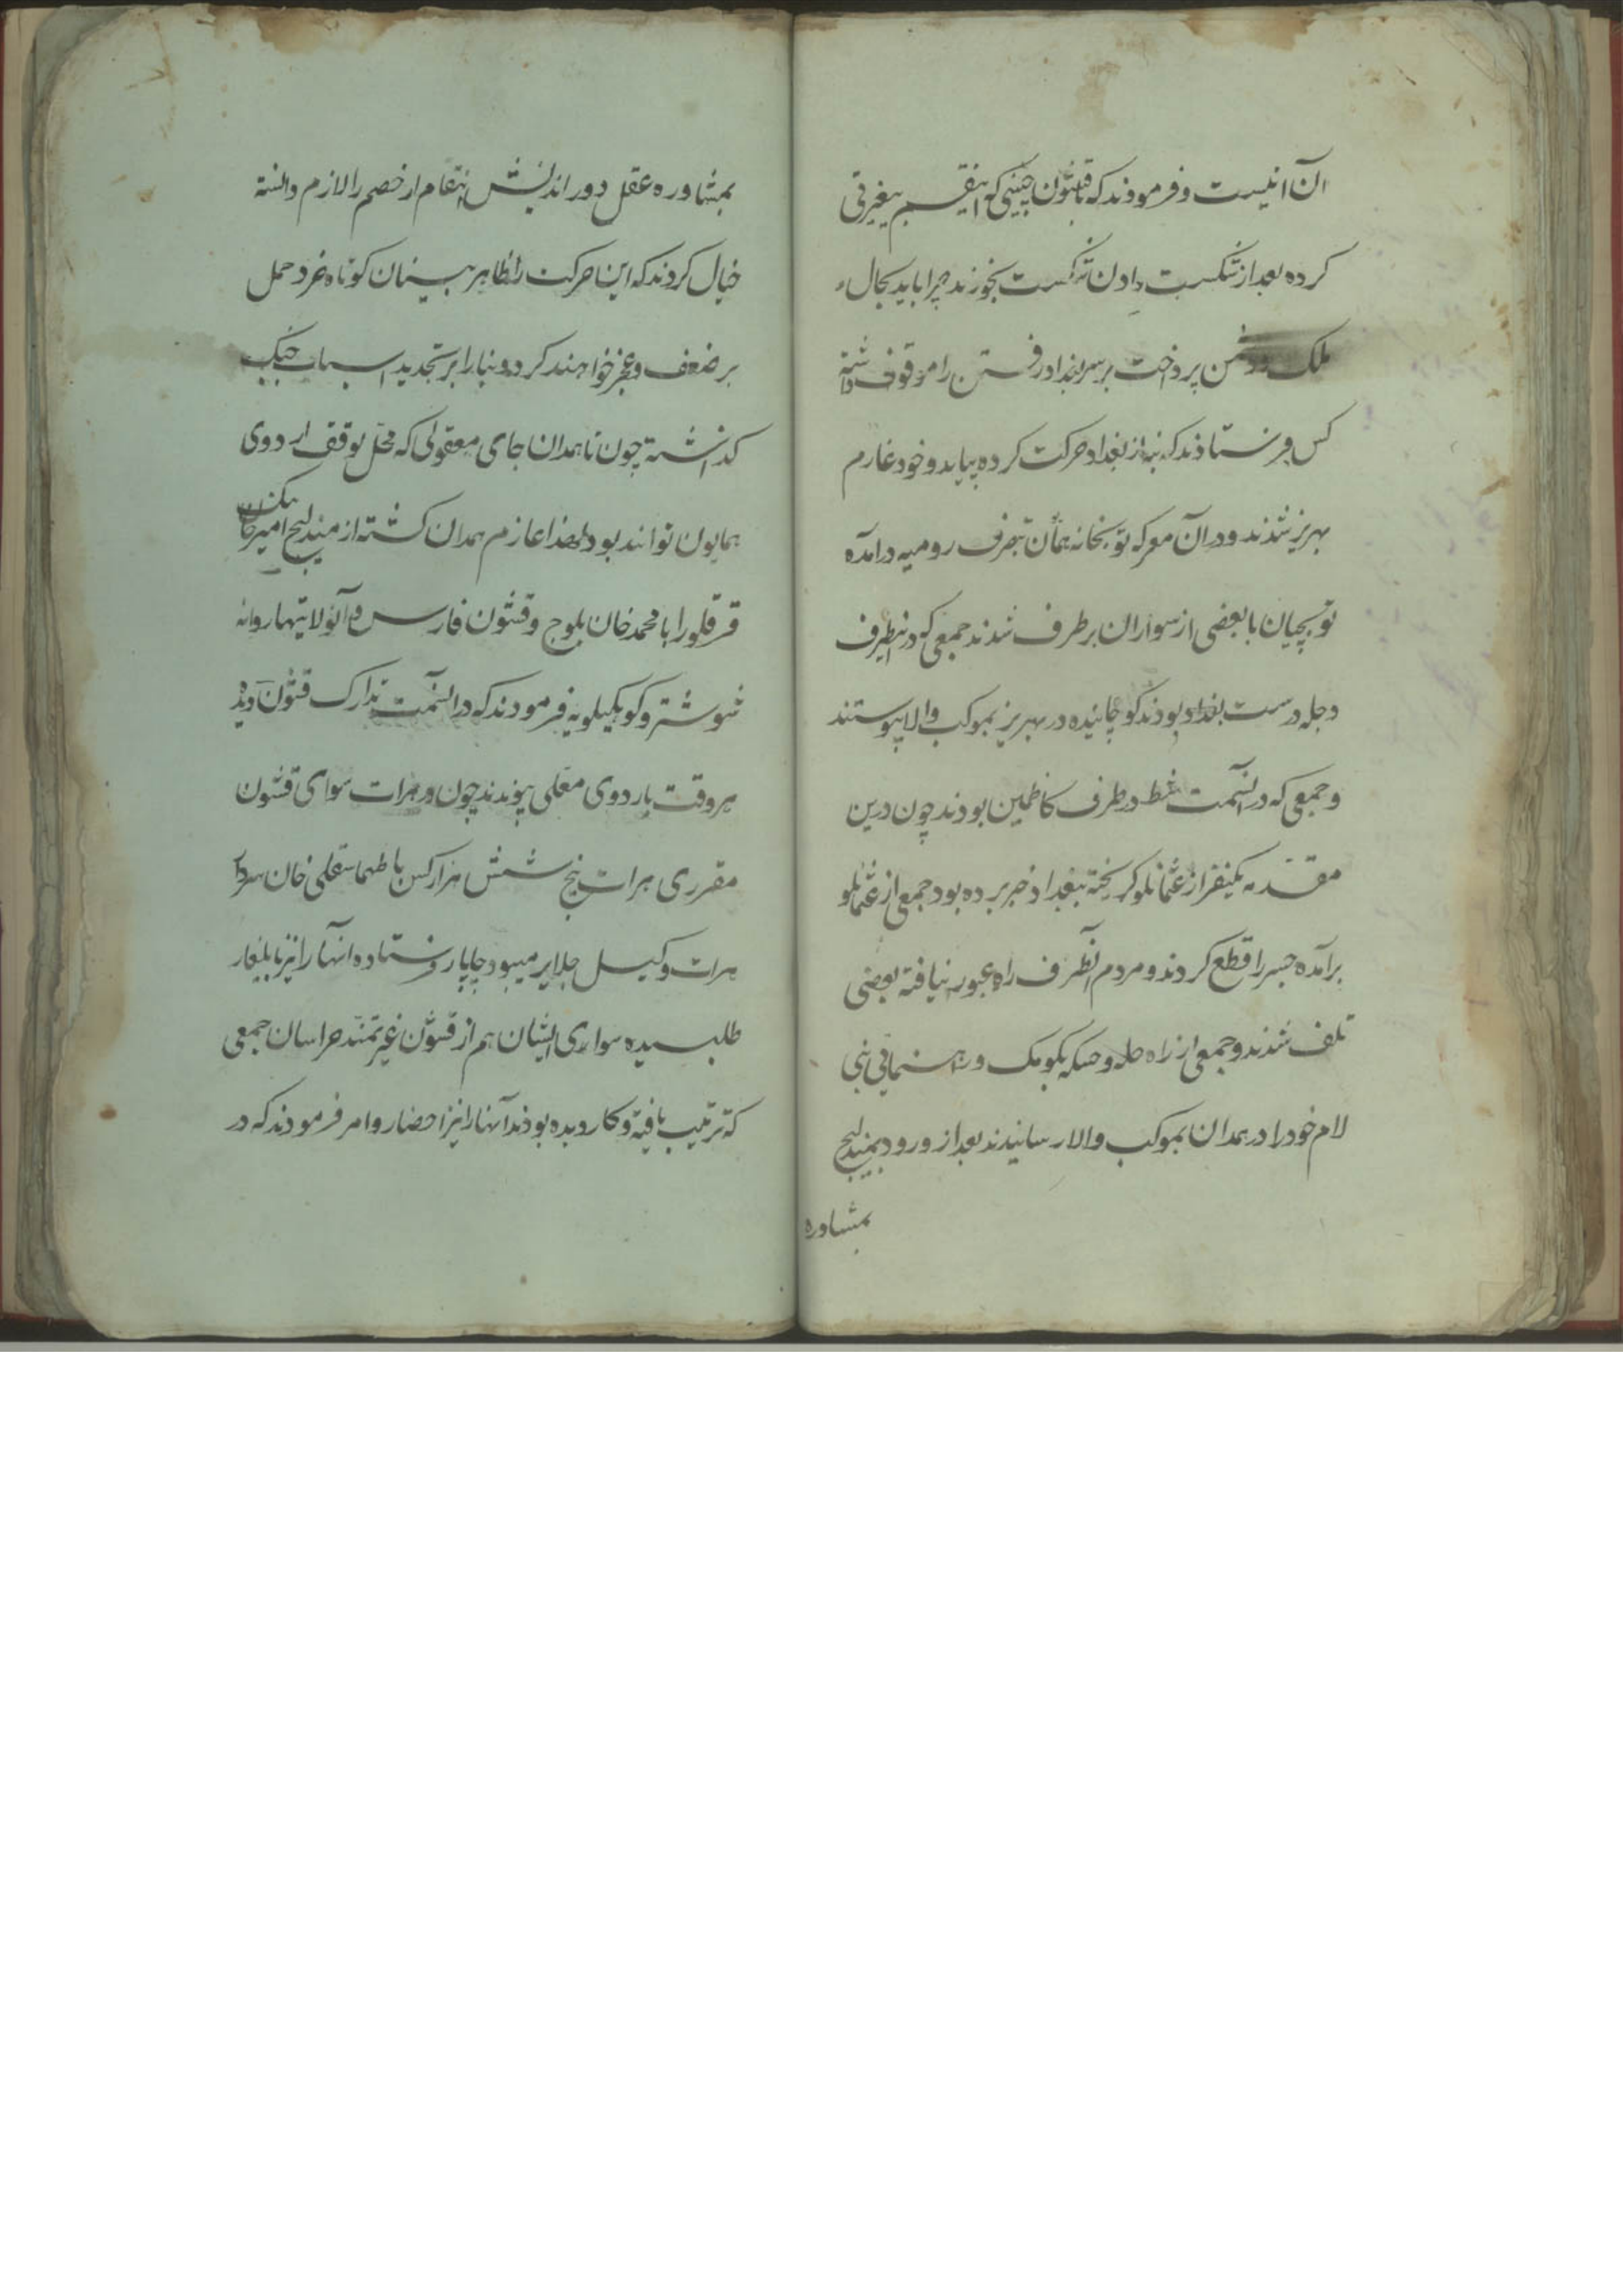 ان آنیست و فرمودند که قشون چنینی که اینقسم بیغیرتی
کرده بعد از شکست دادن شکست بخورند چرا باید بحال
ملک دشمن پرداخت بر سر بغداد رفتن را موقوف داشته
کس فرستادند که بنه از بغداد حرکت کرده بیاید و خود عازم
بهریز شدند و در آن معرکه توبخانه همان تبصرف رومیه درآمده
توپچیان با بعضی از سواران برطرف شدند جمعی که در اینطرف
دجله در سمت بغداد بودند کوچانیده در بهریز بموکب والا پیوستند
و جمعی که در آنسمت شط در طرف کاظمین بودند چون درین
مقدمه یکنفر از عثمانلو کریخته ببغداد خبر برده بود جمعی از عثمانلو
برآمده جسر را قطع کردند و مردم آنطرف راه عبور نیافته بعضی
تلف شدند و جمعی از راه حله و حسکه بکومک و راهنمائی بنی
لام خود را در همدان بموکب والا رسانیدند بعد از ورود بمندلیج
بمشاوره
بمشاوره عقل دور اندیش انتقام از خصم را لازم دانسته
خیال کردند که این حرکت را ظاهر بینان کوتاه خرد حمل
بر ضعف و عجز خواهند کرد و بنا را بر تجدید اسباب جنک
کذاشته چون تا همدان جای معقولی که محل توقف اردوی
همایون تواند بود لهذا عازم همدان کشته از مندلیج امیرخان بیک
قرقلو را با محمد خان بلوج و قشون فارس و آنولایتها روانه
شوشتر و کوهکیلویه فرمودند که در آنسمت تدارک قشون دیده
هر وقت باردوی معلی پیوندند چون در هرات سوای قشون
مقرری هرات پنج شش هزار کس با طهماسقلی خان سردار
هرات وکیل جلایر میبود چاپار فرستاده آنها را نیز بایلغار
طلبیده سوای ایشان هم از قشون غیرتمند خراسان جمعی
که ترتیب یافته و کار دیده بودند آنها را نیز احضار و امر فرمودند که در